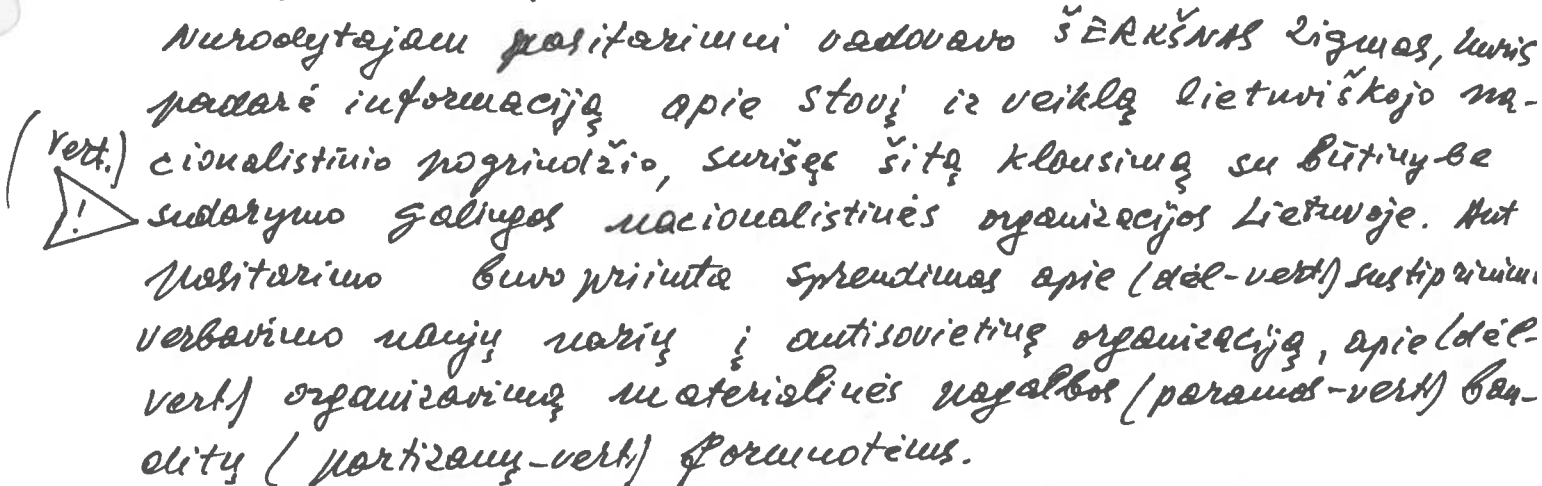 Nurodytajam pasitarimui vadovavo ŠERKŠNAS Zigmas, kuris
padarė informaciją apie stovį ir veiklą lietuviškojo na-
(vert.) cionalistinio pogrindžio, surišęs šitą klausimą su būtinybe
! sudarymo galingos nacionalistinės organizacijos Lietuvoje. Ant
pasitarimo buvo priimta sprendimas apie (dėl-vert) sustiprinimą
verbavimo naujų narių į antisovietinę organizaciją, apie (dėl-
vert) organizavimą materialinės pagalbos (paramos-vert) ban-
ditų (partizanų-vert) formuotėms.